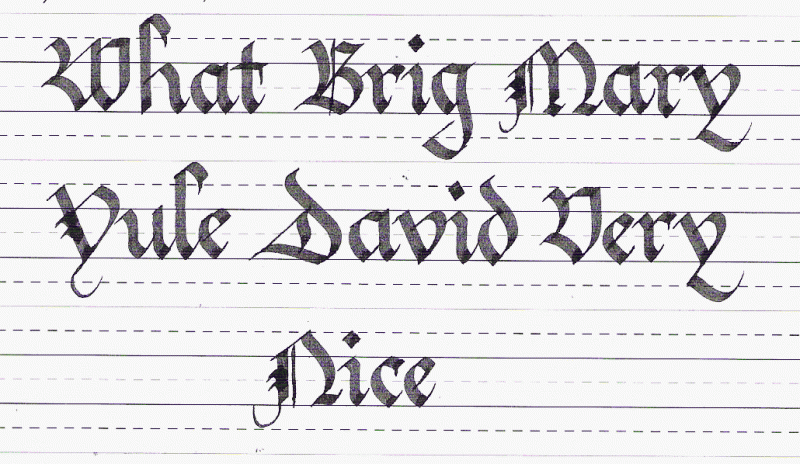 What Brig Mary
Yule David Very
Nice